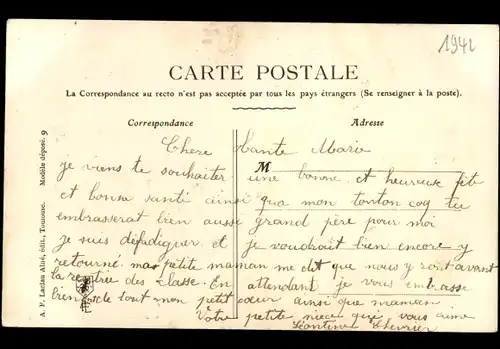 1942
CARTE POSTALE
La Correspondance au recto n'est pas acceptée par tous les pays étrangers (Se renseigner à la poste).
Correspondance Adresse
M
Chere tante Marie
je viens te souhaiter une bonne et heureuse fête
et bonne santé ainsi qua mon tonton coq tu
embrasserat bien aussi grand père pour moi
je suis défadiguer et je voudrait bien encore y
retourné mas petite maman me dit que nous y iront avant
la rentrée des classe. En attendant je vous embrasse
bien de tout mon petit cœur ainsi que maman
Votre petite niece qui vous aime
Léontine Chevrier
A. F. Laclau Aîné, édit., Toulouse. Modèle déposé. 9